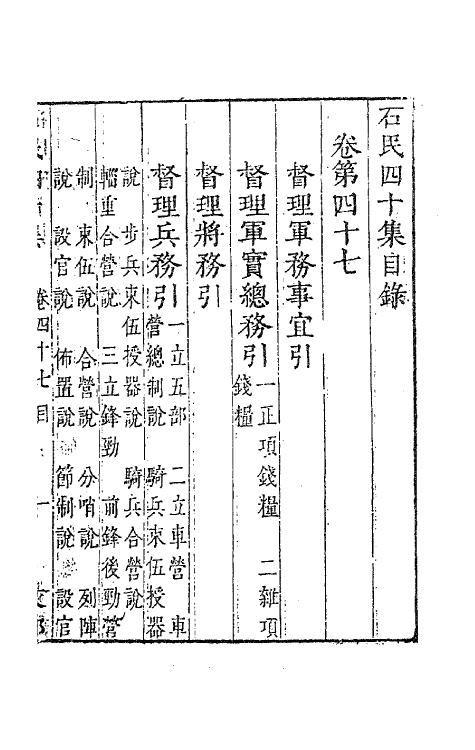 石民四十集目錄
卷第四十七
督理軍務事宜引
督理軍實總務引 一正項錢糧 二雜項
錢糧
督理將務引
督理兵務引 一立五部 二立車營 車
營總制說 騎兵束伍授器
說 步兵束伍授器說 騎兵合營說
輜重合營說 三立鋒勁 前鋒後勁營
制 束伍說 合營說 分哨說 列陣
說 設官說 佈置說 節制說 設官
卷四十七目 一